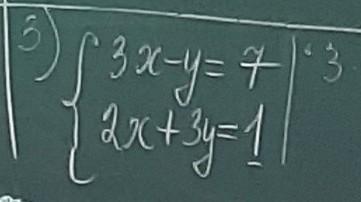 3) { 3x-y=7 | · 3
2x+3y=1 |